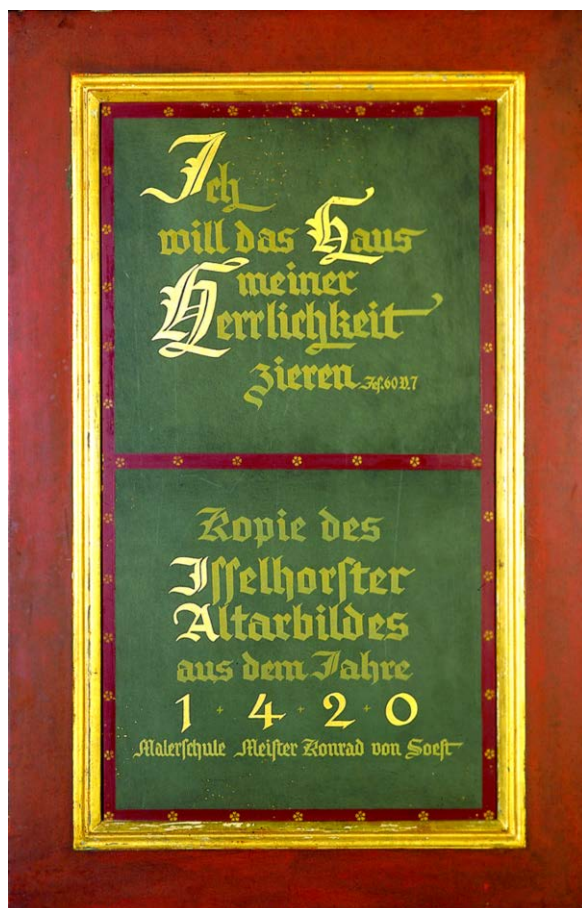 Ich
will das Haus
meiner
Herrlichkeit
zieren. Jes. 60 V. 7
Kopie des
Isselhorster
Altarbildes
aus dem Jahre
1 + 4 + 2 + 0
Malerschule Meister Konrad von Soest